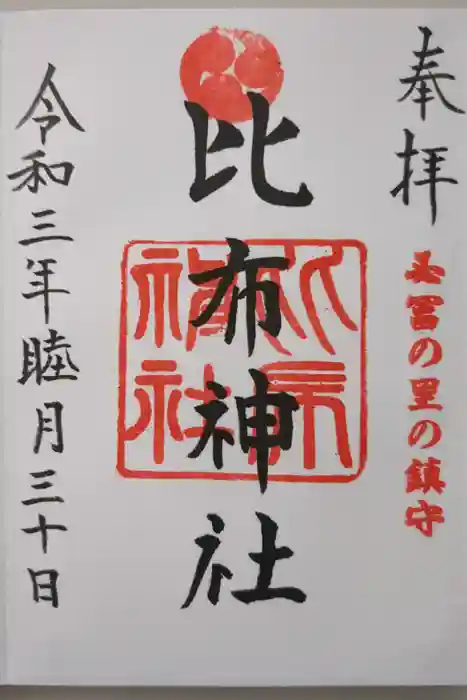 奉拝
の里の鎮守
比布神社
令和三年睦月三十日